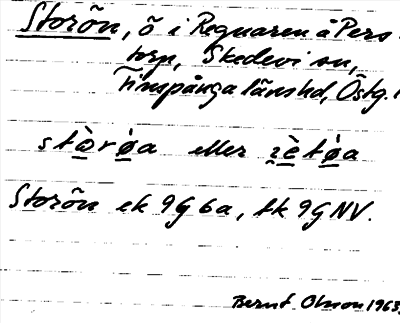 Storön, ö i Regnaren å Pers
torp, Skedevi sn,
Finspånga länshd, Östg.
stòrǿa eller
Storön ek 9G 6a, tk 9G NV.
Bernt Olsson 1963